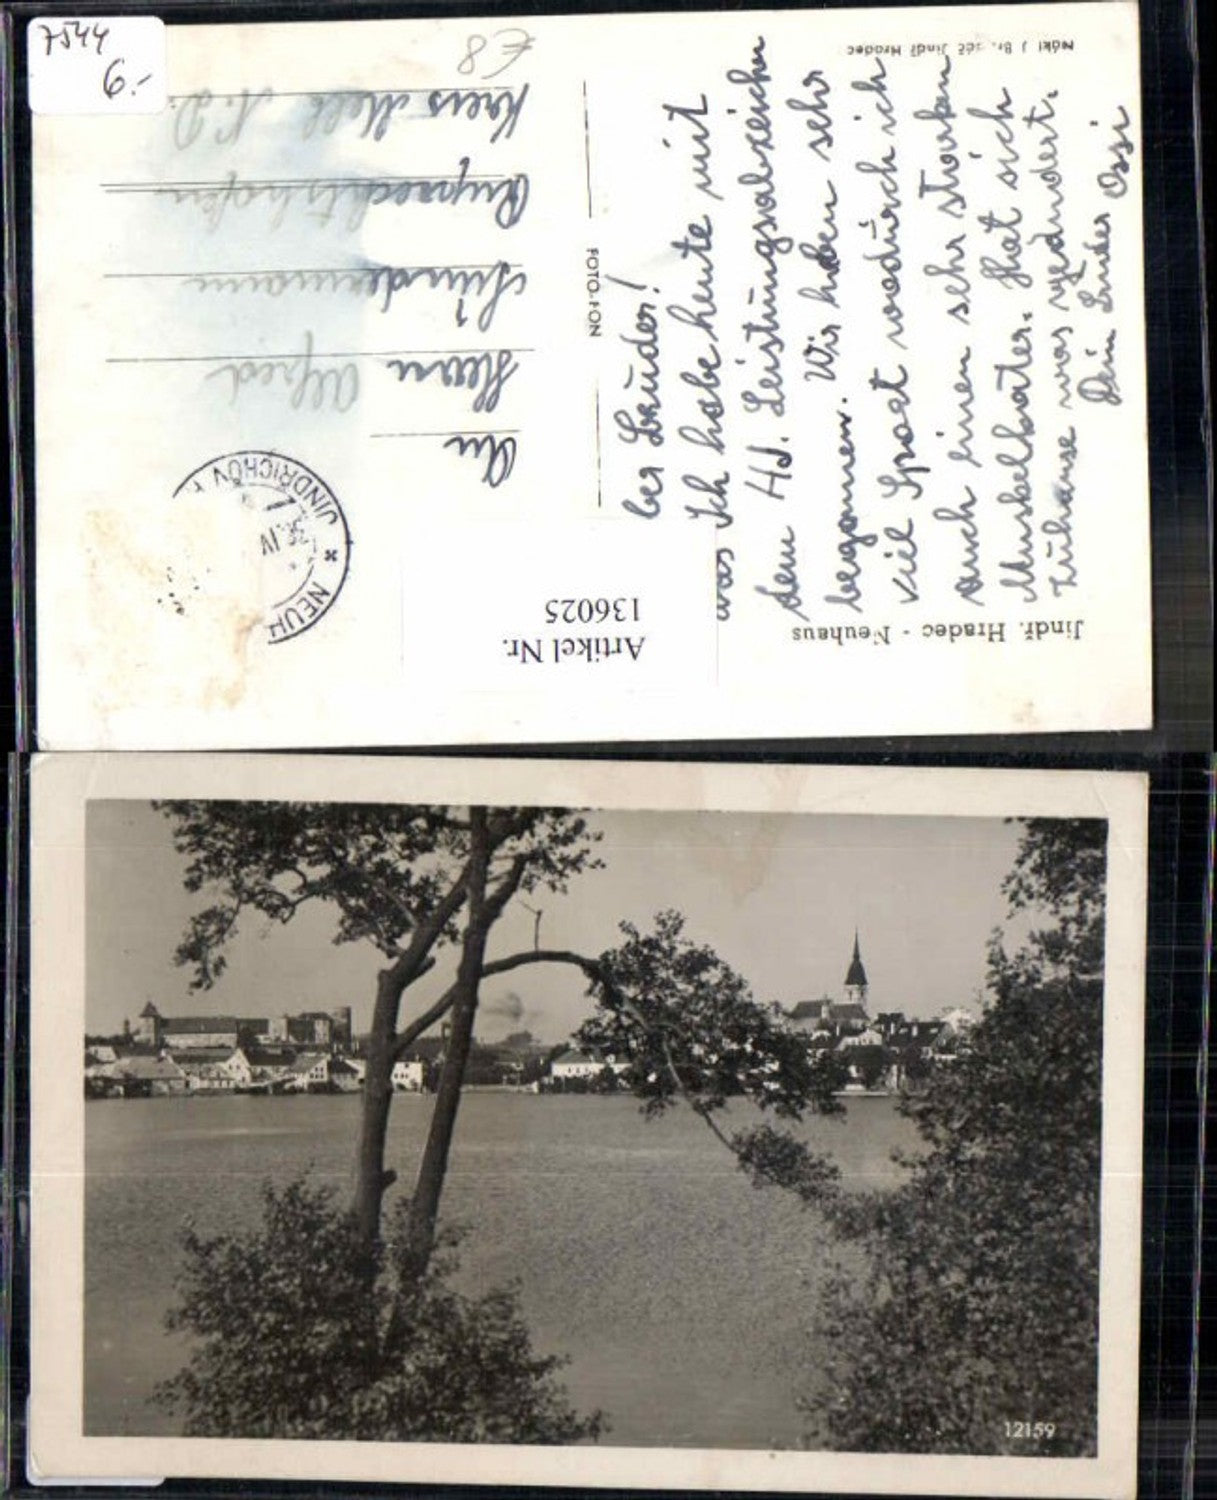 7544
6.-
€8
Jindř. Hradec - Neuhaus
Artikel Nr.
136025
FOTO-FON
Jindř. Hradec
* NEUH
JINDŘICHŮV
IV
An
Herrn Alfred
Lindermann
Ruprechtshofen
Kreis Melk N.D.
ber Bruder!
Ich habe heute mit
dem HJ. Leistungsabzeichen
begonnen. Wir haben sehr
viel Sport wodurch ich
auch einen sehr starken
Muskelkater. Hat sich
zuhause was geändert.
Dein Bruder Ossi
12159